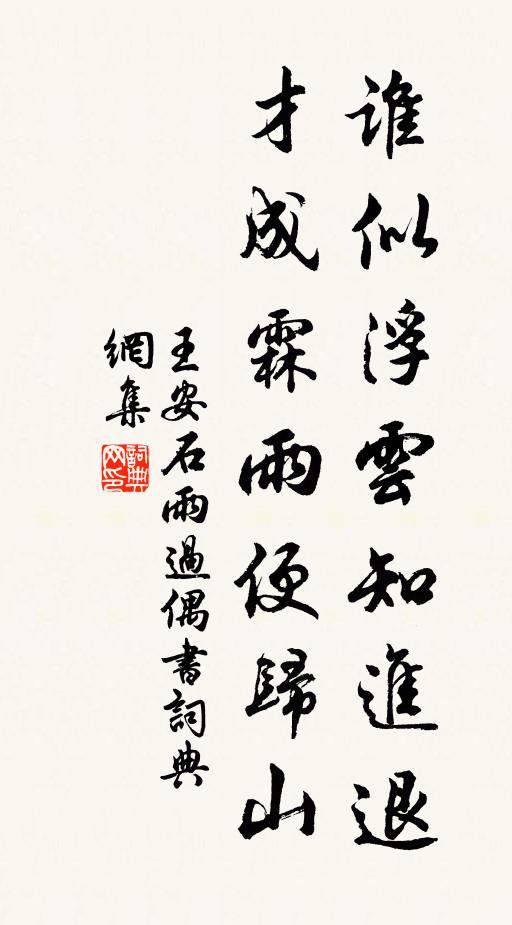 誰似浮雲知進退
才成霖雨便歸山
王安石雨過偶書詞典
網集
詞典
网印